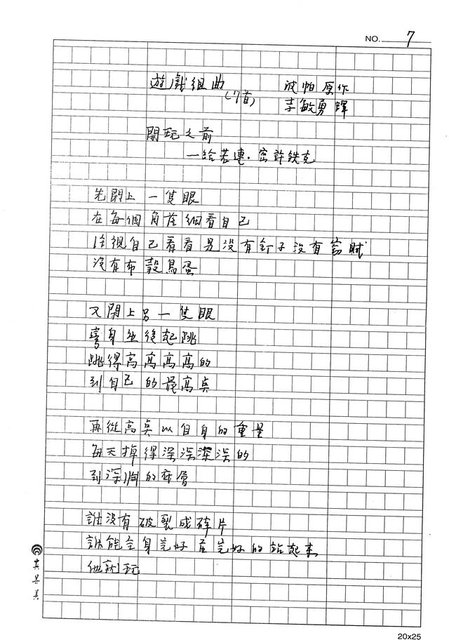 NO. 7
遊戲組曲 波帕原作
(7首) 李敏勇譯
開玩之前
—給若連·密許鉄克
先閉上一隻眼
在每個角落細看自己
檢視自己看看是没有釘子没有竊賊
没有布穀鳥蛋
又閉上另一隻眼
蹲身然後起跳
跳得高高高高的
到自己的最高點
再從高點以自身的重量
每天掉得深深深深的
到深淵的底層
誰没有破裂成碎片
誰能全身完好並完好的站起來
他就玩
20x25